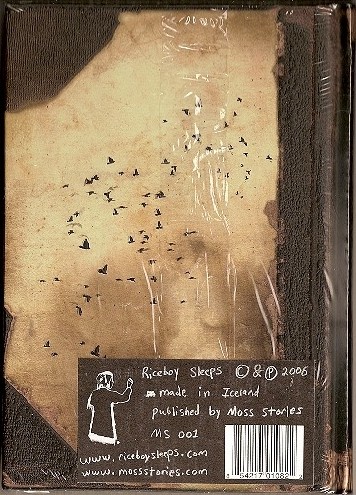 Riceboy Sleeps © & ℗ 2006
made in Iceland
published by Moss Stories
MS 001
www.riceboysleeps.com
www.mossstories.com